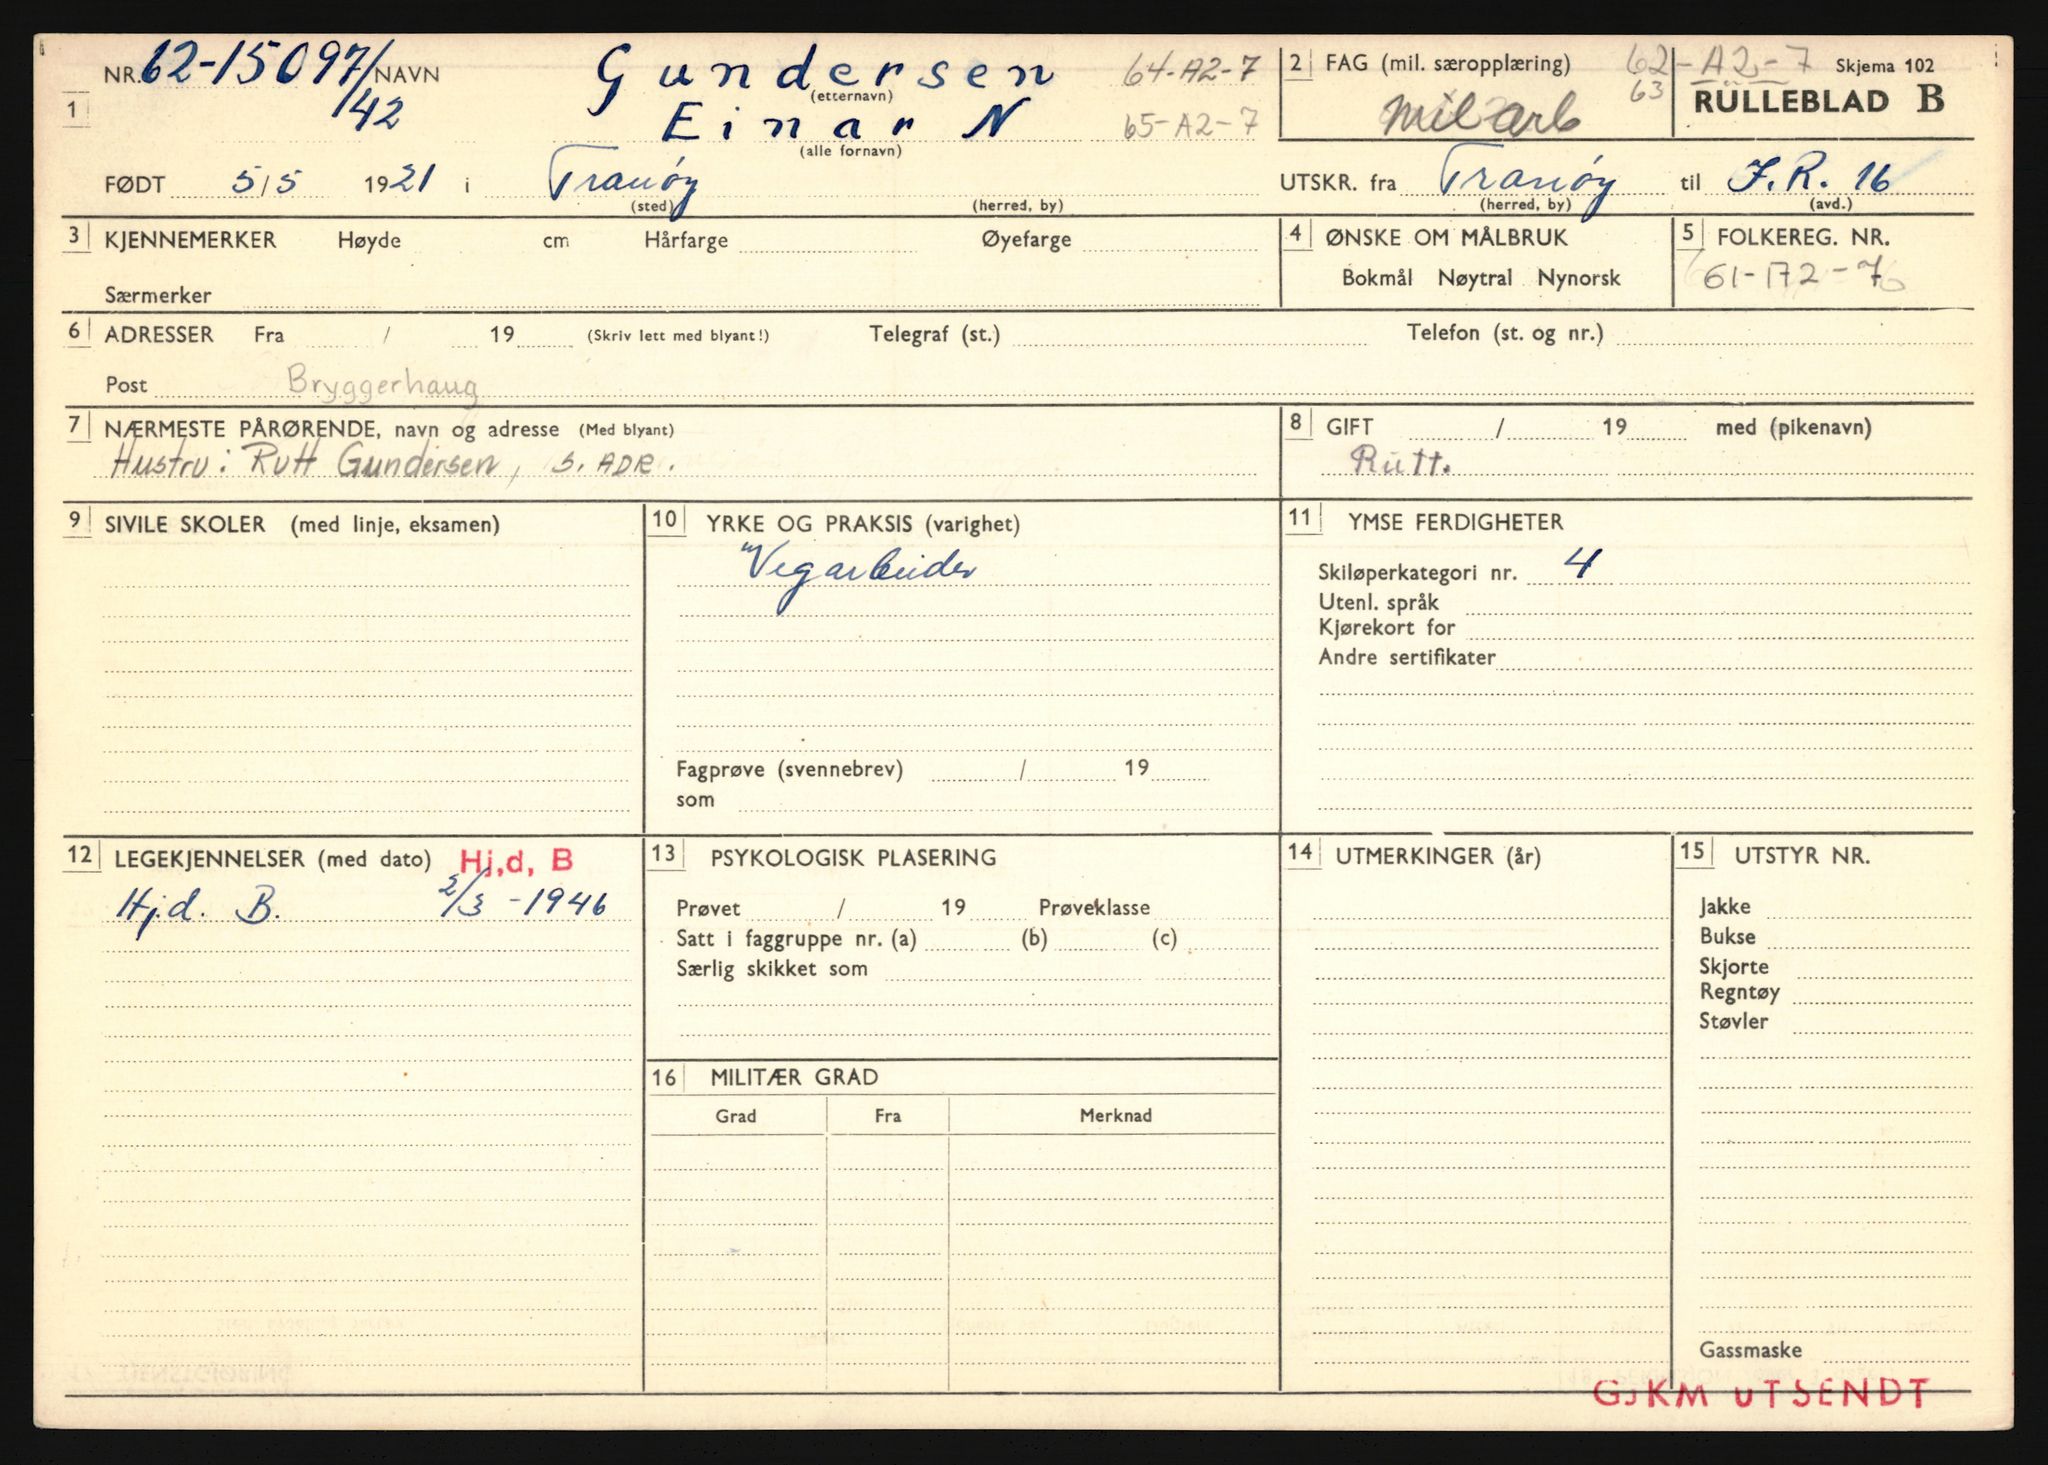 NR. 62-15097/42 NAVN Gundersen 64-A2-7
(etternavn)
1 Einar N 65-A2-7
(alle fornavn)
2 FAG (mil. særopplæring) 62-A2-7 Skjema 102
63
Mil arb RULLEBLAD B
FØDT 5/5 1921 i Tranöy
(sted) (herred, by)
UTSKR. fra Tranöy til J.R. 16
(herred, by) (avd.)
3 KJENNEMERKER Høyde cm Hårfarge Øyefarge
Særmerker
4 ØNSKE OM MÅLBRUK
Bokmål Nøytral Nynorsk
5 FOLKEREG. NR.
61-172-7
6 ADRESSER Fra / 19 (Skriv lett med blyant!) Telegraf (st.) Telefon (st. og nr.)
Post Bryggerhaug
7 NÆRMESTE PÅRØRENDE, navn og adresse (Med blyant)
Hustru: Rutt Gundersen, S. ADR.
8 GIFT / 19 med (pikenavn)
Rutt.
9 SIVILE SKOLER (med linje, eksamen)
10 YRKE OG PRAKSIS (varighet)
Vegarbeider
Fagprøve (svennebrev) / 19
som
11 YMSE FERDIGHETER
Skiløperkategori nr. 4
Utenl. språk
Kjørekort for
Andre sertifikater
12 LEGEKJENNELSER (med dato) Hj,d, B
Hj.d. B. 2/3-1946
13 PSYKOLOGISK PLASERING
Prøvet / 19 Prøveklasse
Satt i faggruppe nr. (a) (b) (c)
Særlig skikket som
14 UTMERKINGER (år)
15 UTSTYR NR.
Jakke
Bukse
Skjorte
Regntøy
Støvler
Gassmaske
16 MILITÆR GRAD
Grad Fra Merknad
GJKM UTSENDT